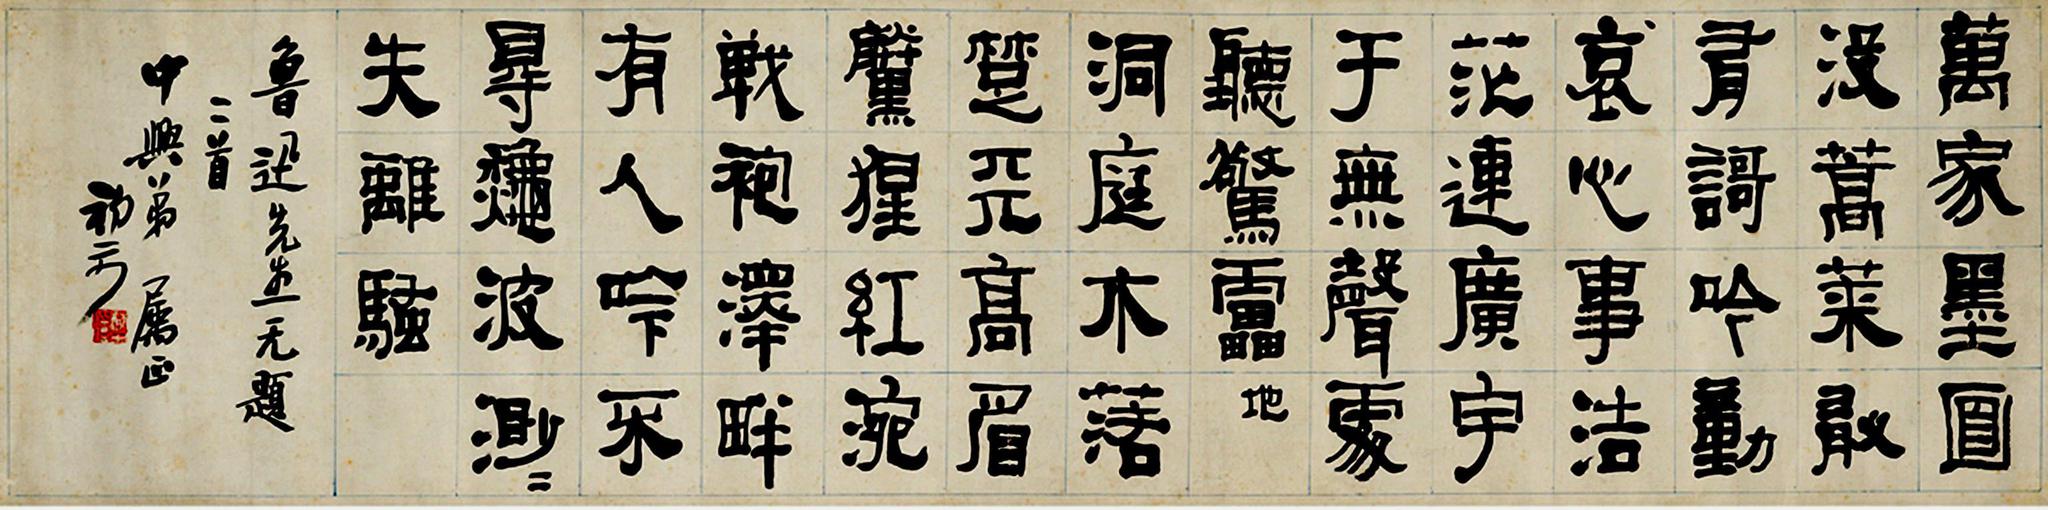 萬家墨面
沒蒿萊敢
有謌吟動
哀心事浩
茫連廣宇
于無聲處
聽驚靁地
洞庭木落
楚天高眉
黱猩紅涴
戰袍澤畔
有人吟不
㝵龝波渺二
失離騷
魯迅先生无題
二首
中興弟屬正